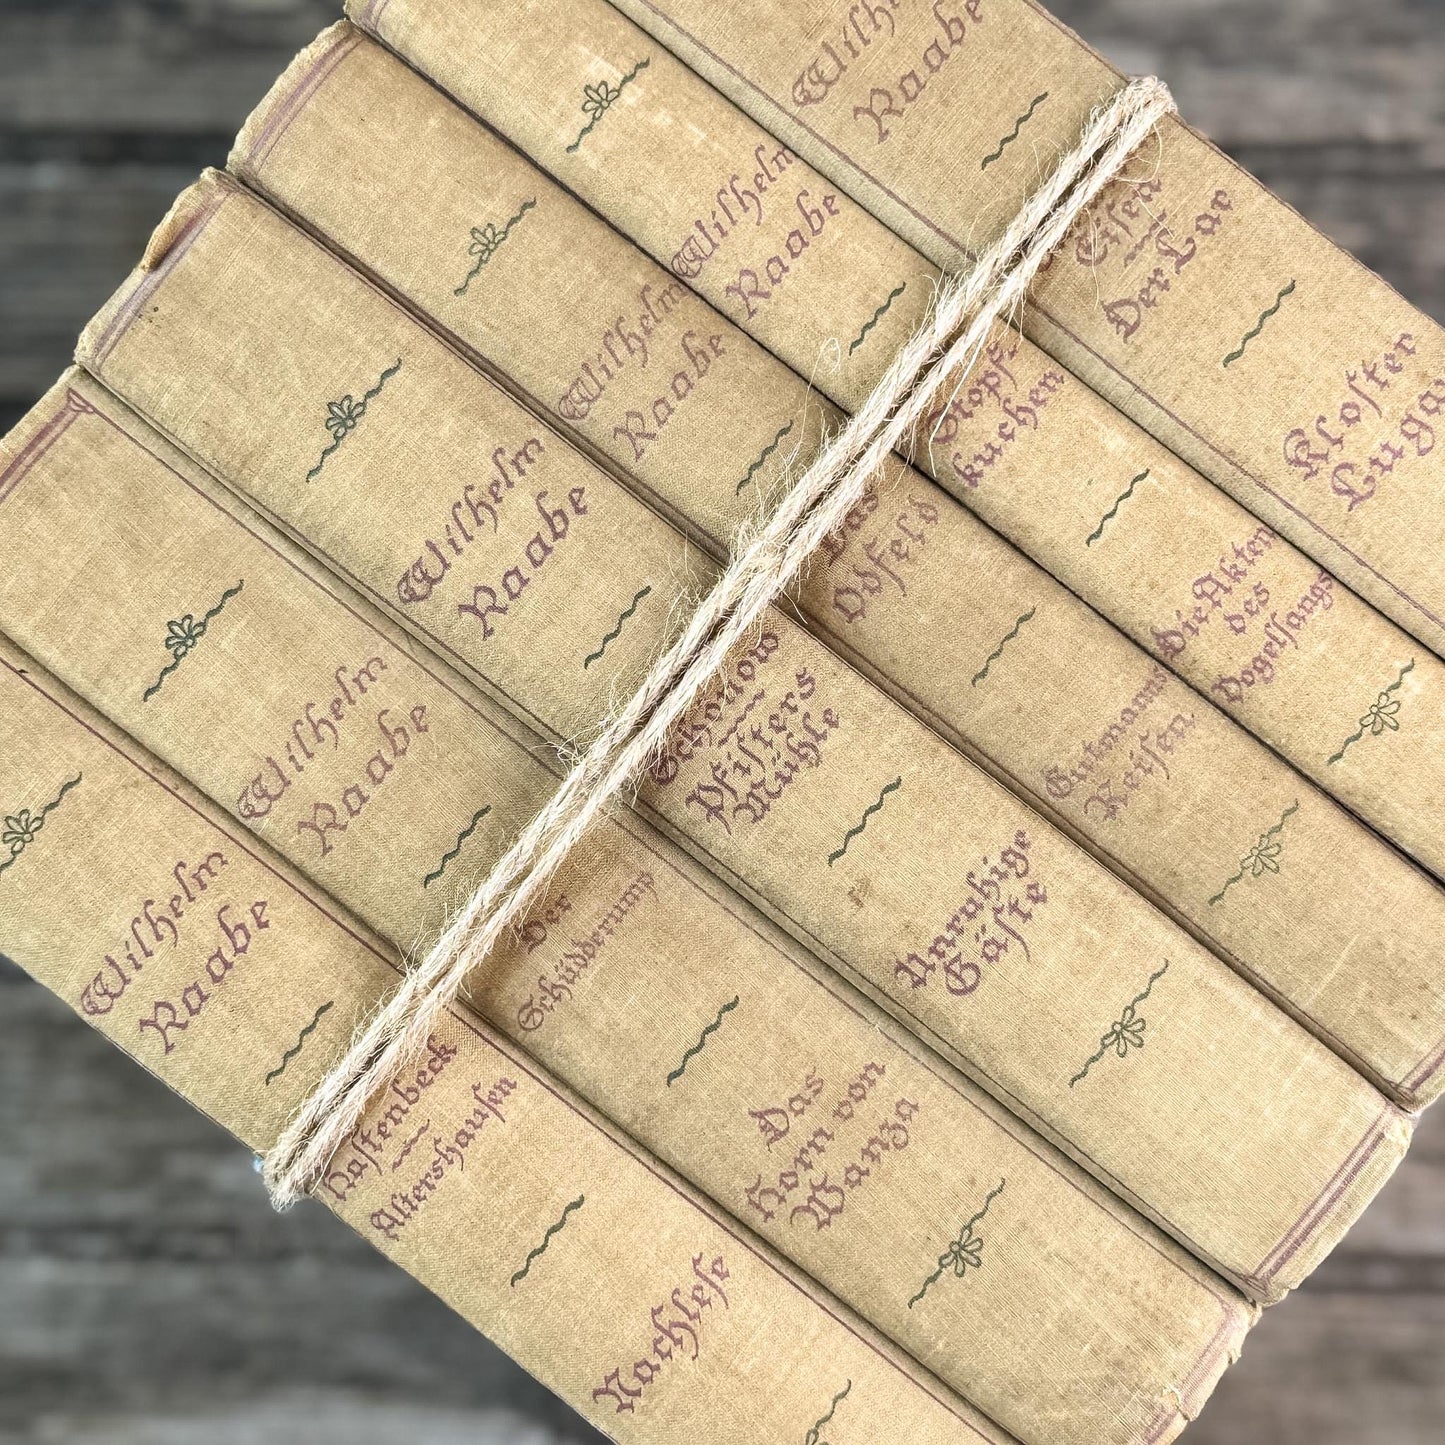 Wilhelm
Raabe
Eisen
Der Lar
Kloster
Wilhelm
Raabe
Stopf-
kuchen
Die Akten
des
Vogelsangs
Wilhelm
Raabe
Das
Odfeld
Gutmanns
Reisen
Wilhelm
Raabe
Schönow
Pfisters
Mühle
Unruhige
Gäste
Wilhelm
Raabe
Der
Schüdderump
Das
Horn von
Wanza
Wilhelm
Raabe
Hastenbeck
Altershausen
Nachlese